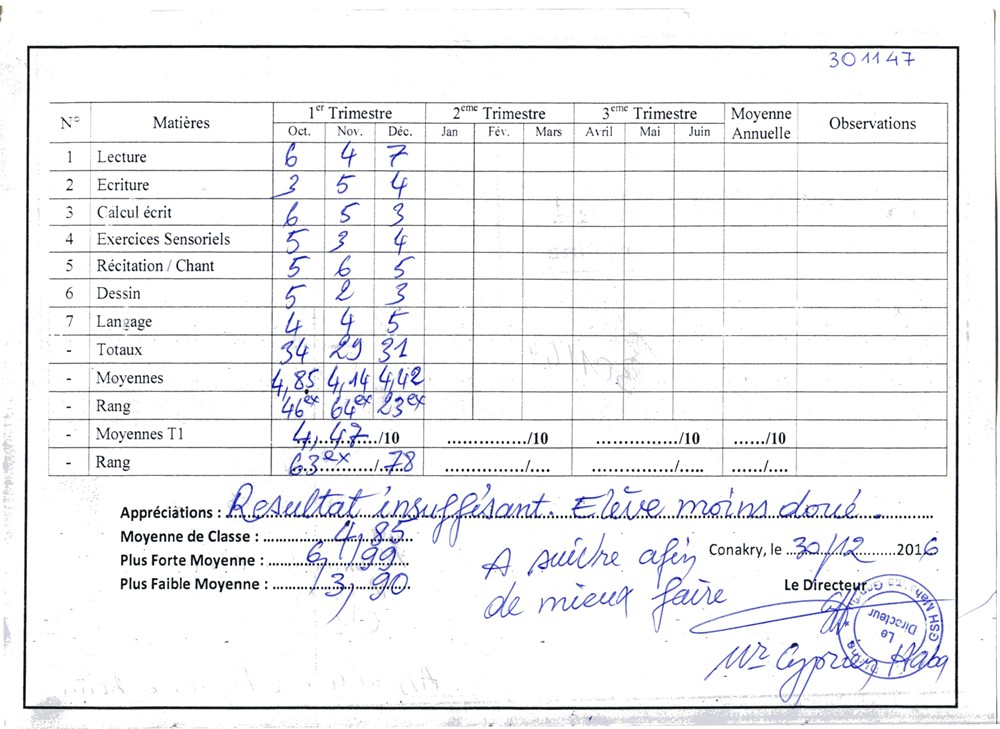 301147
N° Matières 1er Trimestre 2eme Trimestre 3eme Trimestre Moyenne Annuelle Observations
Oct. Nov. Déc. Jan Fév. Mars Avril Mai Juin
1 Lecture 6 4 7
2 Ecriture 3 5 4
3 Calcul écrit 6 5 3
4 Exercices Sensoriels 5 3 4
5 Récitation / Chant 5 6 5
6 Dessin 5 2 3
7 Langage 4 4 5
- Totaux 34 29 31
- Moyennes 4,85 4,14 4,42
- Rang 46ex 64ex 23ex
- Moyennes T1 4,47/10 ............../10 ............../10 ....../10
- Rang 63ex/78 ............../.... ............../..... ....../....
Appréciations : Resultat insuffésant. Elève moins doué.
Moyenne de Classe : 4,85
Plus Forte Moyenne : 6,99
Plus Faible Moyenne : 3,90
A suivre afin
de mieux faire
Conakry, le 30/12 2016
Le Directeur
Le Directeur
Mr Cyprien Haba